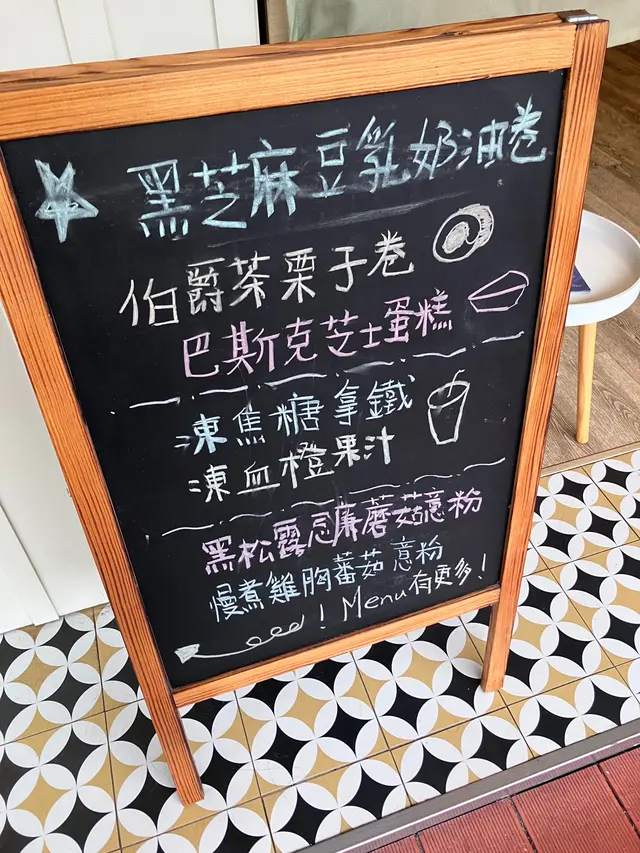 黑芝麻豆乳奶油卷
伯爵茶栗子卷
巴斯克芝士蛋糕
凍焦糖拿鐵
凍血橙果汁
黑松露忌廉蘑菇意粉
慢煮雞胸蕃茄意粉
! Menu有更多!